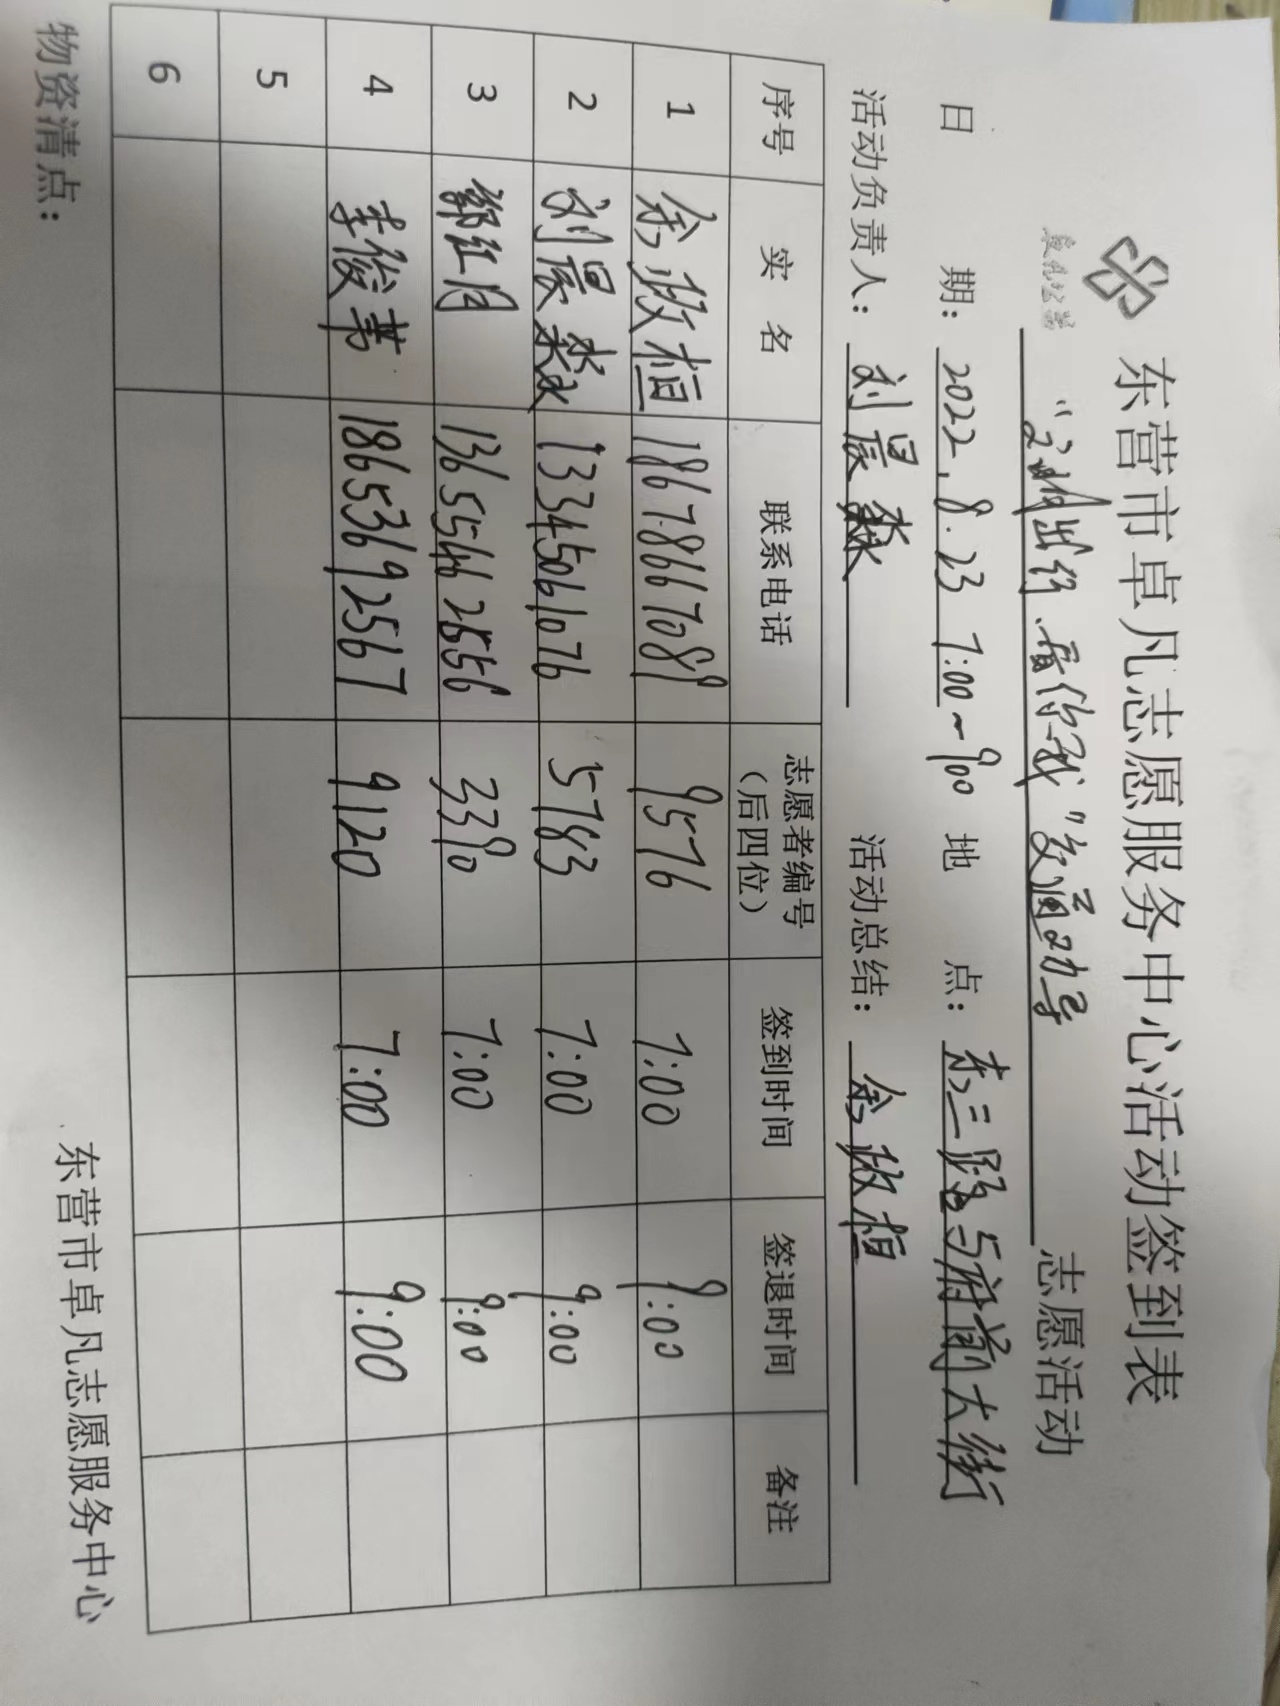 东营市卓凡志愿服务中心活动签到表
卓凡公益
“文明出行、有你我”交通劝导 志愿活动
日期：2022.8.23 7:00~9:00 地点：东三路与府前大街
活动负责人：刘晨淼 活动总结：余政桓
序号 实名 联系电话 志愿者编号（后四位） 签到时间 签退时间 备注
1 余政桓 18678667089 9576 7:00 9:00
2 刘晨淼 13345061076 5783 7:00 9:00
3 郭红月 13655462556 3390 7:00 9:00
4 李俊苇 18653692567 9120 7:00 9:00
5
6
物资清点：
东营市卓凡志愿服务中心